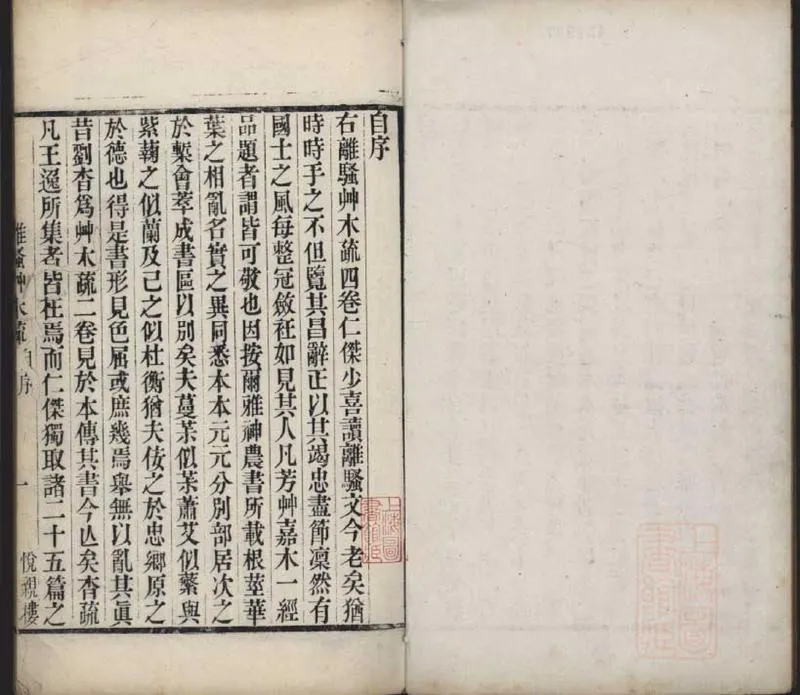 自序
右離騷艸木疏四卷仁傑少喜讀離騷文今老矣猶
時時手之不但覽其昌辭正以其竭忠盡節凜然有
國士之風每整冠斂衽如見其人凡芳艸嘉木一經
品題者謂皆可敬也因按爾雅神農書所載根莖華
葉之相亂名實之異同悉本本元元分別部居次之
於槧會萃成書區以別矣夫蔓茮似茮蕭艾似蘩與
紫蘜之似蘭及己之似杜衡猶夫佞之於忠鄉原之
於德也得是書形見色屈或庶幾焉舉無以亂其眞
昔劉杳爲艸木疏二卷見於本傳其書今亾矣杳疏
凡王逸所集者皆在焉而仁傑獨取諸二十五篇之
離騷艸木疏 自序 一 悅親樓
上海圖書館藏